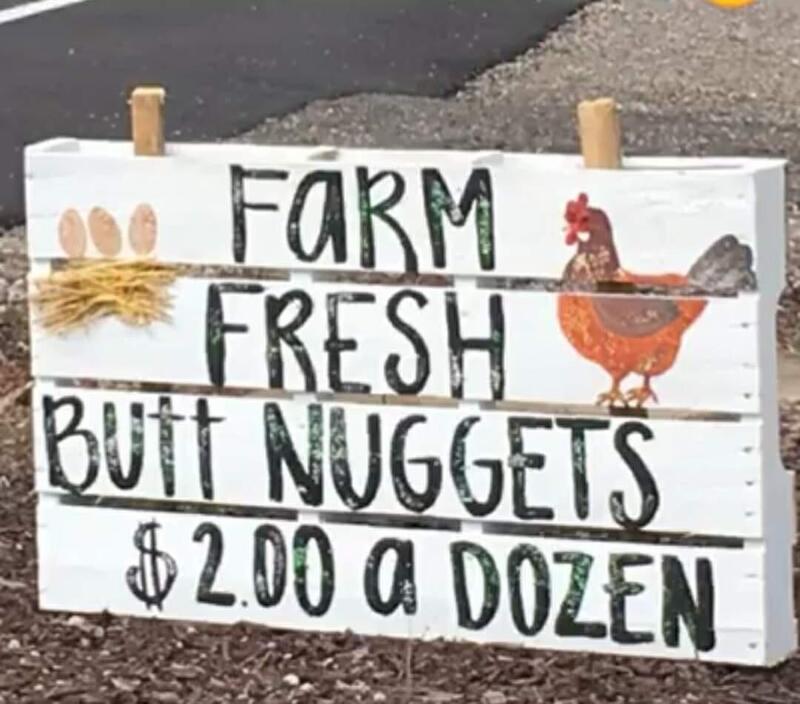 FaRM
FRESH
BUtt NUGGETS
$2.00 a DOZEN